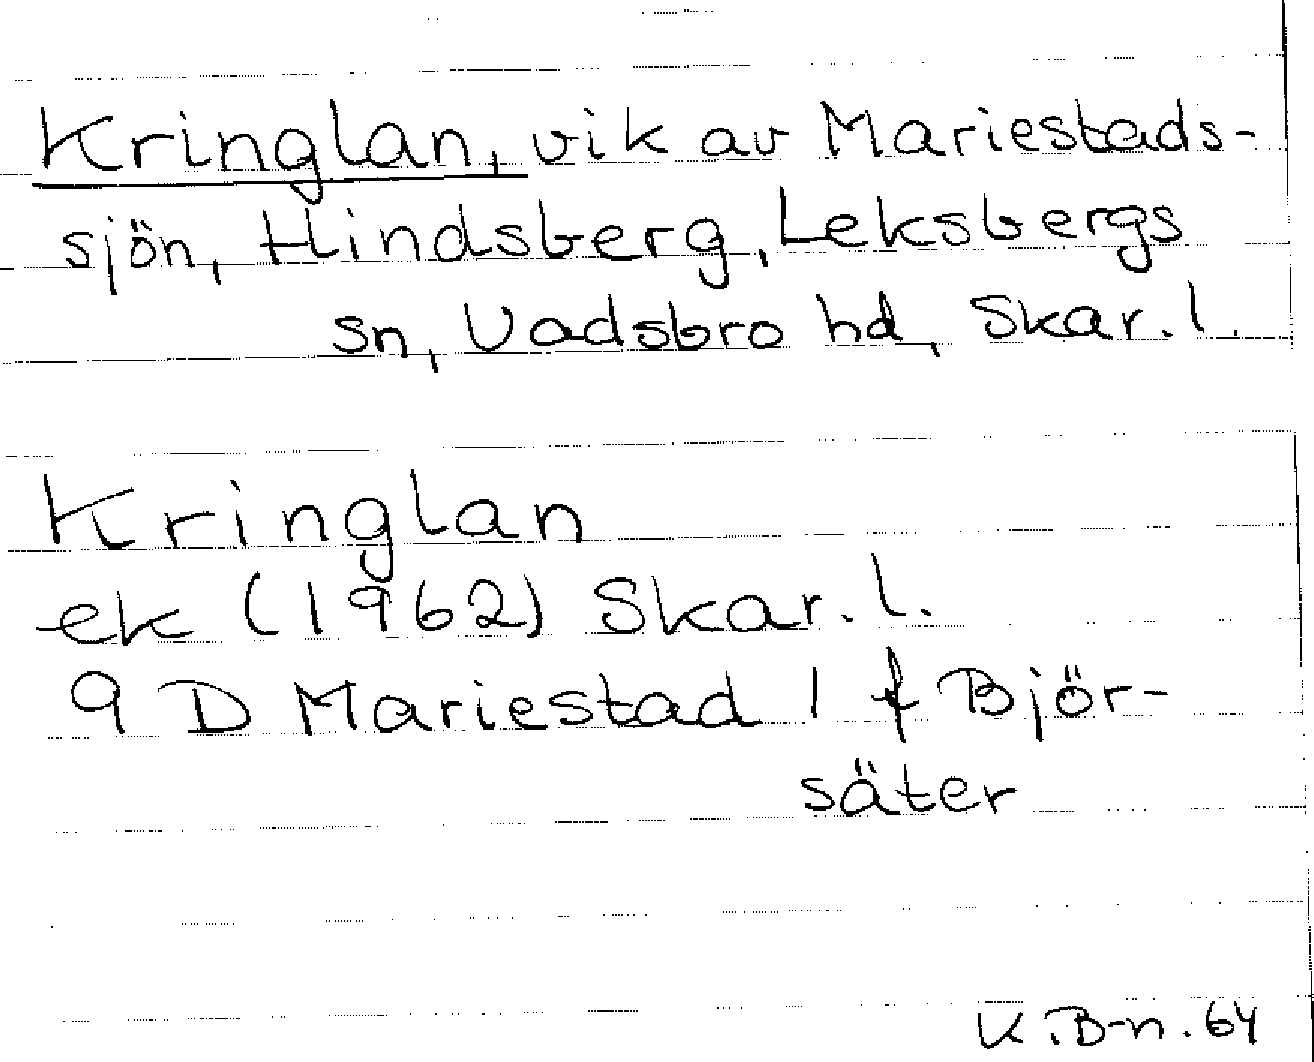 Kringlan, vik av Mariestads-
sjön, Hindsberg, Leksbergs
sn, Vadsbro hd, Skar. l.
Kringlan
ek (1962) Skar. l.
9 D Mariestad 1 f Björ-
säter
K.B-n. 64